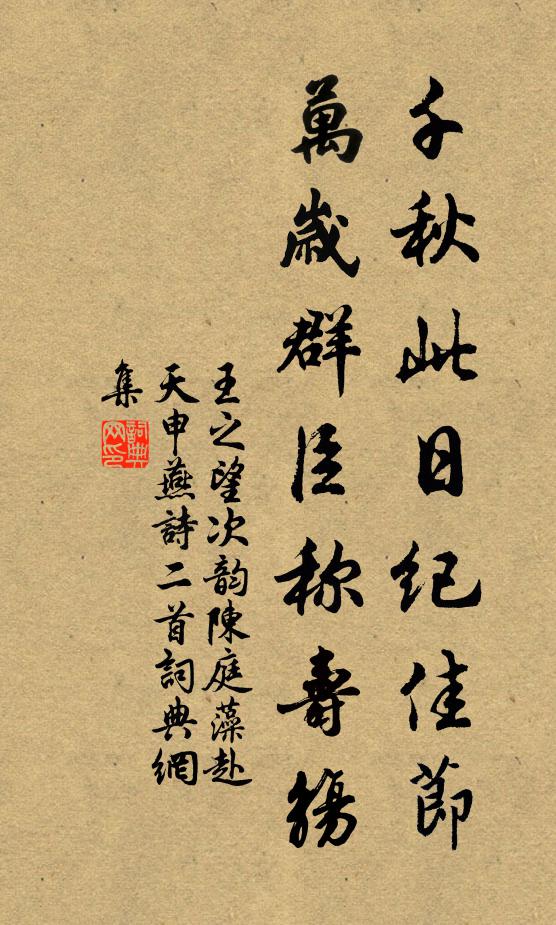 千秋此日纪佳節
萬歲群臣称壽觴
王之望次韵陳庭藻赴
天申燕詩二首詞典網
集
詞典网印